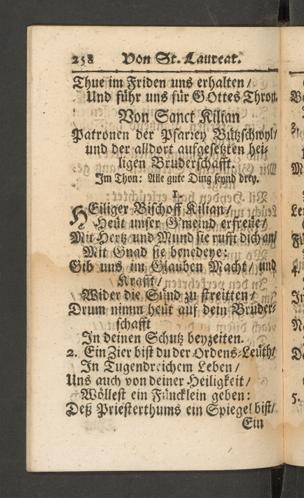 258 Von St. Laureat.
Thue im Friden uns erhalten /
Und führ uns für GOttes Thron.
Von Sanct Kilian
Patronen der Pfarrey Bützschwyl /
und der alldort aufgesetzten hei-
ligen Bruderschafft.
Im Thon: Alle gute Ding seynd drey.
1.
HEiliger Bischoff Kilian /
Heüt unser G'meind erfreüe /
Mit Hertz und Mund sie rufft dich an /
Mit Gnad sie benedeye:
Gib uns im Glauben Macht / und
Krafft /
Wider die Sünd zu streitten /
Drum nimm heüt auf dein Bruder-
schafft
In deinen Schutz beyzeiten.
2. Ein Zier bist du der Ordens-Leüth /
In Tugendreichem Leben /
Uns auch von deiner Heiligkeit /
Wöllest ein Füncklein geben:
Deß Priesterthums ein Spiegel bist /
Ein